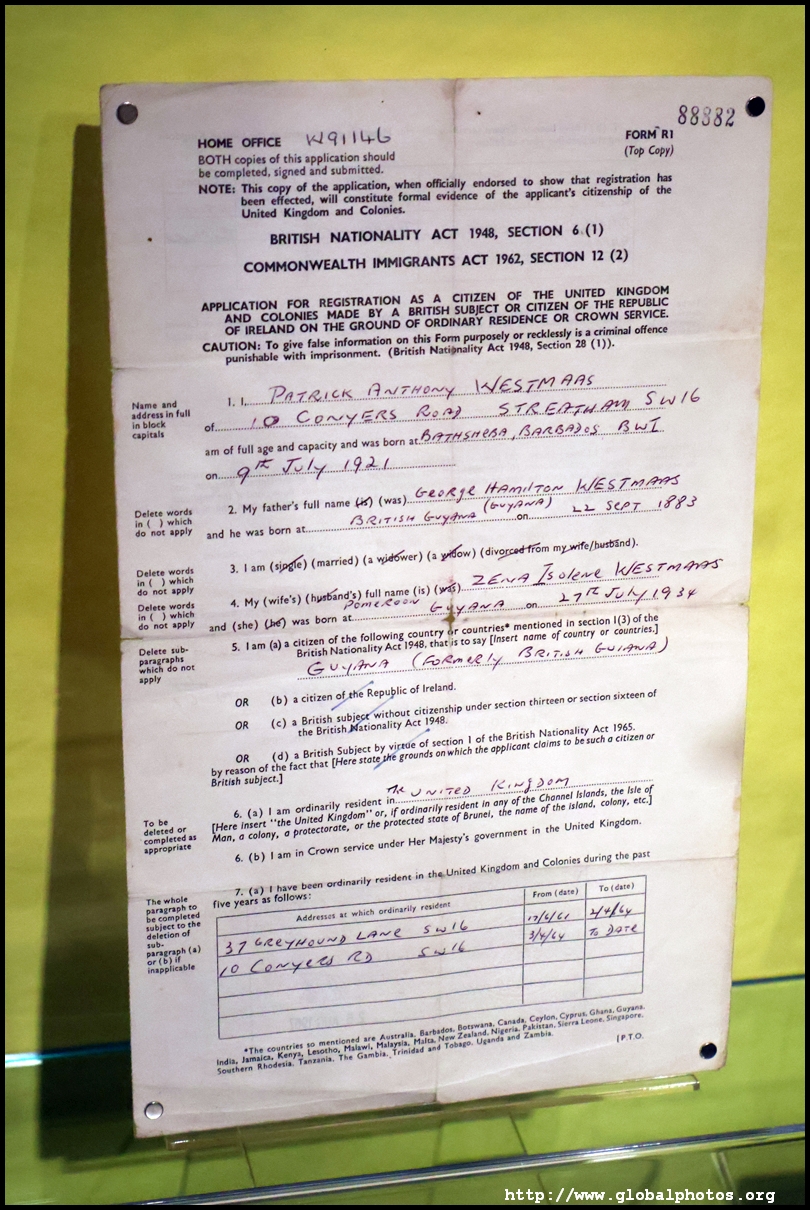 88382
HOME OFFICE W91146
FORM R1
(Top Copy)
BOTH copies of this application should
be completed, signed and submitted.
NOTE: This copy of the application, when officially endorsed to show that registration has
been effected, will constitute formal evidence of the applicant's citizenship of the
United Kingdom and Colonies.
BRITISH NATIONALITY ACT 1948, SECTION 6 (1)
COMMONWEALTH IMMIGRANTS ACT 1962, SECTION 12 (2)
APPLICATION FOR REGISTRATION AS A CITIZEN OF THE UNITED KINGDOM
AND COLONIES MADE BY A BRITISH SUBJECT OR CITIZEN OF THE REPUBLIC
OF IRELAND ON THE GROUND OF ORDINARY RESIDENCE OR CROWN SERVICE.
CAUTION: To give false information on this Form purposely or recklessly is a criminal offence
punishable with imprisonment. (British Nationality Act 1948, Section 28 (1)).
Name and
address in full
in block
capitals
1. I, PATRICK ANTHONY WESTMAAS
of 10 CONYERS ROAD STREATHAM SW16
am of full age and capacity and was born at BATHSHEBA, BARBADOS BWI
on 9th July 1921
Delete words
in ( ) which
do not apply
2. My father's full name (is) (was) GEORGE HAMILTON WESTMAAS
and he was born at BRITISH GUYANA (GUYANA) on 22 SEPT 1883
Delete words
in ( ) which
do not apply
3. I am (single) (married) (a widower) (a widow) (divorced from my wife/husband).
Delete words
in ( ) which
do not apply
4. My (wife's) (husband's) full name (is) (was) ZENA ISOLENE WESTMAAS
and (she) (he) was born at POMEROON GUYANA on 27th July 1934
Delete sub-
paragraphs
which do not
apply
5. I am (a) a citizen of the following country or countries* mentioned in section 1(3) of the
British Nationality Act 1948, that is to say [Insert name of country or countries.]
GUYANA (FORMERLY BRITISH GUIANA)
OR (b) a citizen of the Republic of Ireland.
OR (c) a British subject without citizenship under section thirteen or section sixteen of
the British Nationality Act 1948.
OR (d) a British Subject by virtue of section 1 of the British Nationality Act 1965.
by reason of the fact that [Here state the grounds on which the applicant claims to be such a citizen or
British subject.]
To be
deleted or
completed as
appropriate
6. (a) I am ordinarily resident in THE UNITED KINGDOM
[Here insert "the United Kingdom" or, if ordinarily resident in any of the Channel Islands, the Isle of
Man, a colony, a protectorate, or the protected state of Brunei, the name of the island, colony, etc.]
6. (b) I am in Crown service under Her Majesty's government in the United Kingdom.
The whole
paragraph to
be completed
subject to the
deletion of
sub-
paragraph (a)
or (b) if
inapplicable
7. (a) I have been ordinarily resident in the United Kingdom and Colonies during the past
five years as follows:
Addresses at which ordinarily resident From (date) To (date)
37 GREYHOUND LANE SW16 17/6/61 2/4/64
10 CONYERS RD SW16 3/4/64 TO DATE
*The countries so mentioned are Australia, Barbados, Botswana, Canada, Ceylon, Cyprus, Ghana, Guyana,
India, Jamaica, Kenya, Lesotho, Malawi, Malaysia, Malta, New Zealand, Nigeria, Pakistan, Sierra Leone, Singapore,
Southern Rhodesia, Tanzania, The Gambia, Trinidad and Tobago, Uganda and Zambia.
[P.T.O.
http://www.globalphotos.org